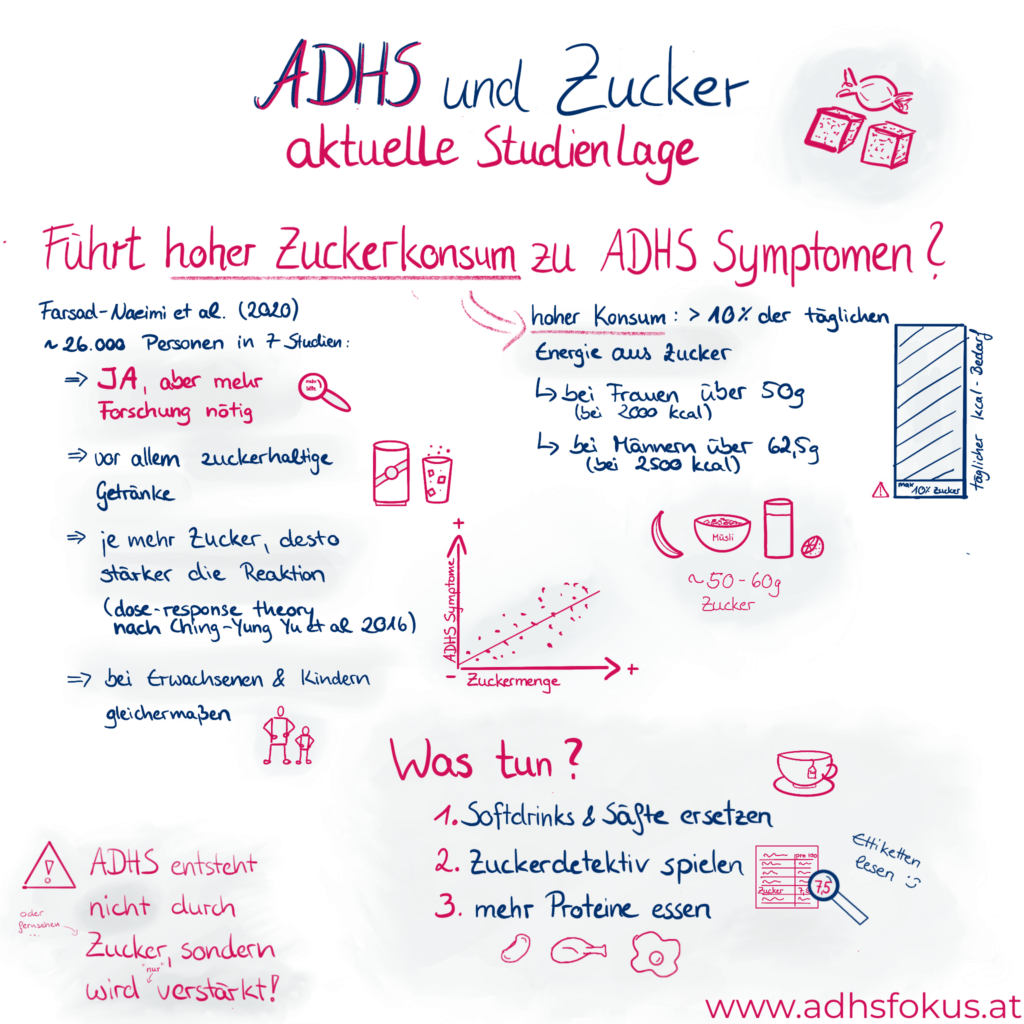 ADHS und Zucker
aktuelle Studienlage
Führt hoher Zuckerkonsum zu ADHS Symptomen?
Farsad-Naeimi et al. (2020)
~ 26.000 Personen in 7 Studien:
⇒ JA, aber mehr
Forschung nötig
⇒ vor allem zuckerhaltige
Getränke
⇒ je mehr Zucker, desto
stärker die Reaktion
(dose-response theory
nach Ching-Yung Yu et al 2016)
⇒ bei Erwachsenen & Kindern
gleichermaßen
hoher Konsum: > 10% der täglichen
Energie aus Zucker
↳ bei Frauen über 50g
(bei 2000 kcal)
↳ bei Männern über 62,5g
(bei 2500 kcal)
täglicher kcal-Bedarf
max 10% Zucker
Müsli
~50-60g
Zucker
+
ADHS Symptome
-
Zuckermenge
+
Was tun?
1. Softdrinks & Säfte ersetzen
2. Zuckerdetektiv spielen
3. mehr Proteine essen
pro 100
Zucker 7,5
7,5
Ettiketten
lesen :)
ADHS entsteht
nicht durch
oder
fernsehen
...
Zucker, sondern
"nur"
wird verstärkt!
www.adhsfokus.at